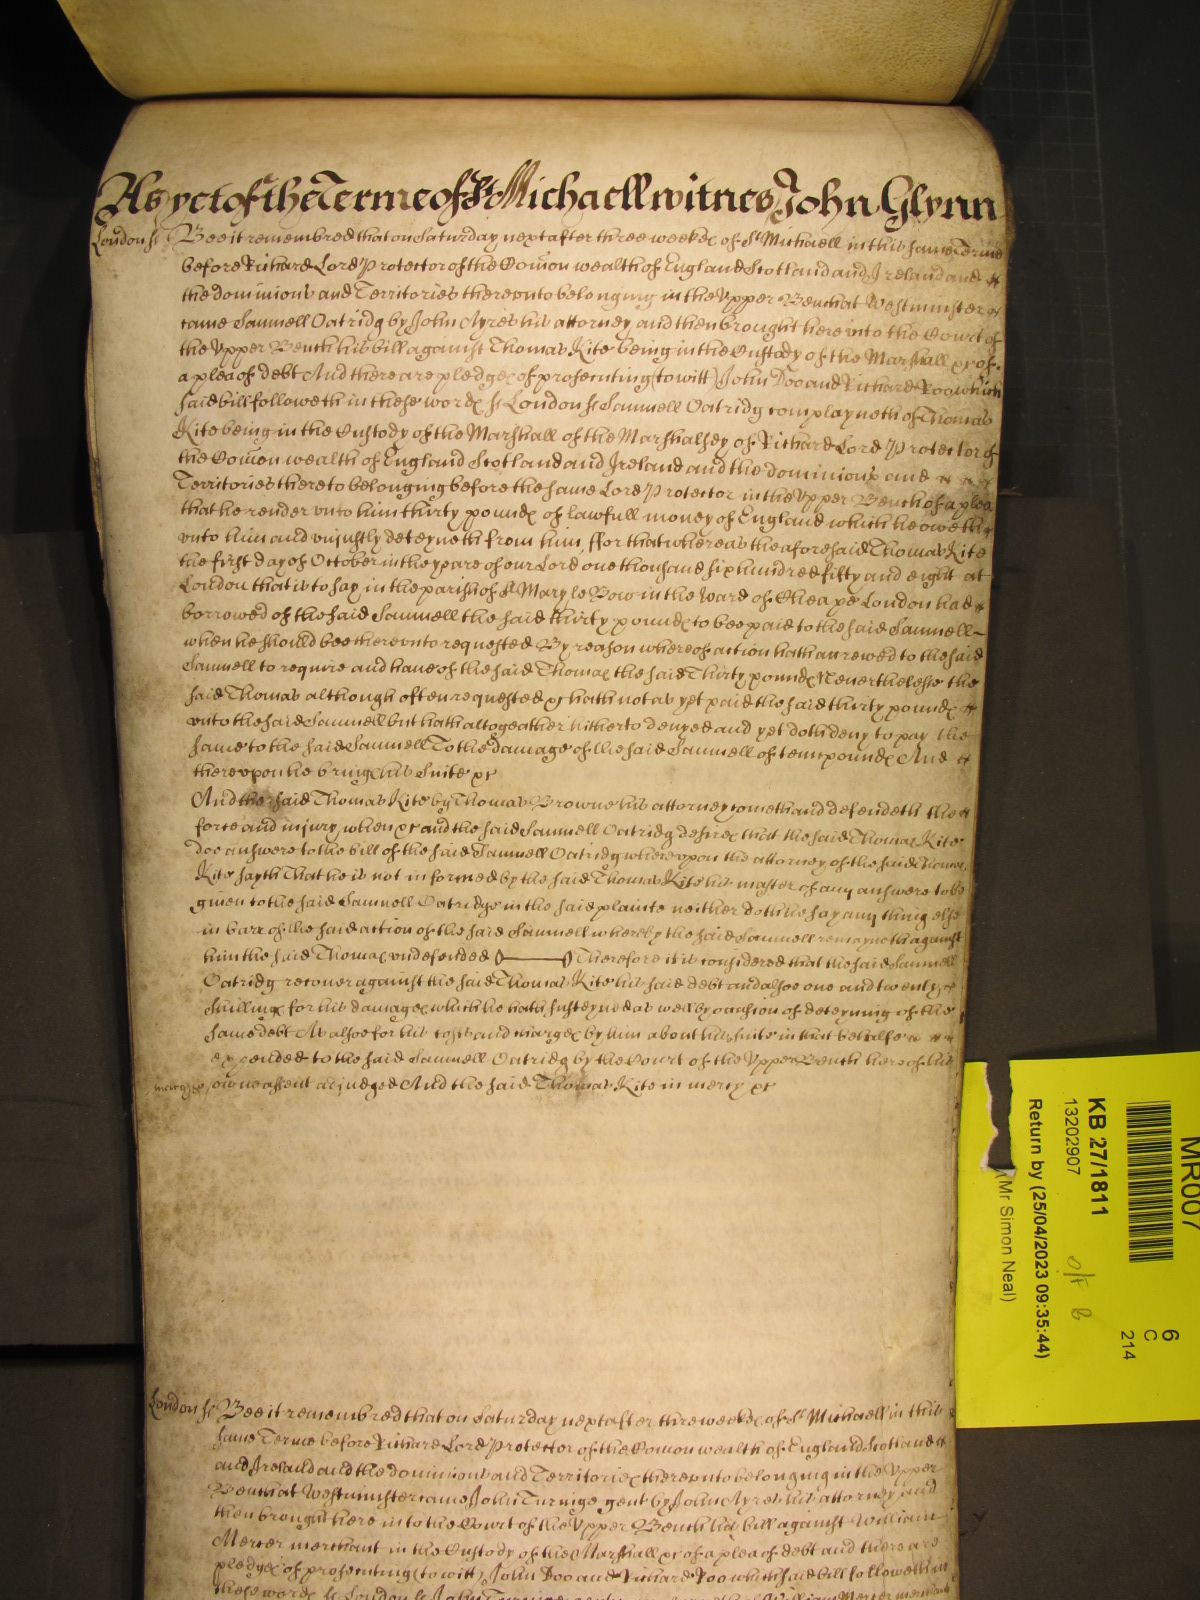 As yet of the Terme of St Michaell witnes John Glynn
London ss Bee it remembred that on Saturday next after three weekes of St Michaell in this same Terme
before Richard Lord Protector of the Com̄on wealth of England Scotland and Ireland and
the dominions and Territories thereunto belonging in the Vpper Bench at Westminster
came Samuell Oatridg by John Ayres his attorney and then brought here into the Court of
the Vpper Bench his bill against Thomas Kite being in the Custody of the Marshall &c of
a plea of debt And there are pledges of prosecuting (to witt) John Doo and Richard Roo which
said bill followeth in these wordes ss London ss Samuell Oatridg complayneth of Thomas
Kite being in the Custody of the Marshall of the Marshalsey of Richard Lord Protector of
the Com̄on wealth of England Scotland and Ireland and the dominions and
Territories thereto belonging before the same Lord Protector in the Vpper Bench of a plea
that he render vnto him thirty poundes of lawfull money of England which he oweth
vnto him and vniustly deteyneth from him, ffor that whereas the aforesaid Thomas Kite
the first day of October in the yeare of our Lord one thousand six hundred fifty and eight at
London that is to say in the parish of St Mary le Bow in the Ward of Cheape London had
borrowed of the said Samuell the said thirty poundes to bee paid to the said Samuell
when he should bee therevnto requested By reason whereof action hath accrewed to the said
Samuell to require and haue of the said Thomas the said Thirty poundes Neuerthelesse the
said Thomas although often requested &c hath not as yet paid the said thirty poundes
vnto the said Samuell but hath altogeather hitherto denyed and yet doth deny to pay the
same to the said Samuell To the damage of the said Samuell of tenn poundes And
therevpon he bringes his Suite &c
And the said Thomas Kite by Thomas Browne his attorney cometh and defendeth the
force and iniury when &c and the said Samuell Oatridg desires that the said Thomas Kite
doe answere to the bill of the said Samuell Oatridg wherevpon the attorney of the said Thomas
Kite sayth That he is not informed by the said Thomas Kite his master of any answere to be
giuen to the said Samuell Oatridge in the said plainte neither doth he say any thing else
in barr of the said action of the said Samuell whereby the said Samuell remayneth against
him the said Thomas vndefended Therefore it is considered that the said Samuell
Oatridg recouer against the said Thomas Kite his said debt and alsoe one and twenty
Shillings for his damages which he hath susteyned as well by occasion of deteyning of the
same debt As alsoe for his costs and charges by him about his suite in that behalfe
expended to the said Samuell Oatridg by the Court of the Vpper Bench here of his
mercy &c owne assent adiudged And the said Thomas Kite in mercy &c
London ss Bee it remembred that on Saturday next after three weekes of St Michaell in this
same Terme before Richard Lord Protector of the Com̄on wealth of England Scotland
and Ireland and the dominions and Territories therevnto belonging in the Vpper
Bench at Westminster came John Turnige gent by John Ayres his attorney and
then brought here into the Court of the Vpper Bench his bill against William
Mercer merchant in the Custody of the Marshall &c of a plea of debt and there are
pledges of prosecuting (to witt) John Doo and Richard Roo which said bill followeth in
these wordes ss London ss John William Mercer
MR007
6
C
214
KB 27/1811
13202907
Return by (25/04/2023 09:35:44)
(Mr Simon Neal)